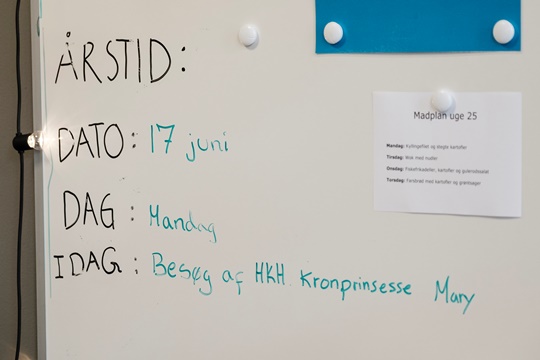 ÅRSTID:
DATO: 17 juni
DAG: Mandag
IDAG: Besøg af HKH Kronprinsesse Mary
Madplan uge 25
Mandag: Kyllingefilet og stegte kartofler
Tirsdag: Wok med nudler
Onsdag: Fiskefrikadeller, kartofler og gulerodssalat
Torsdag: kartofler og grøntsager